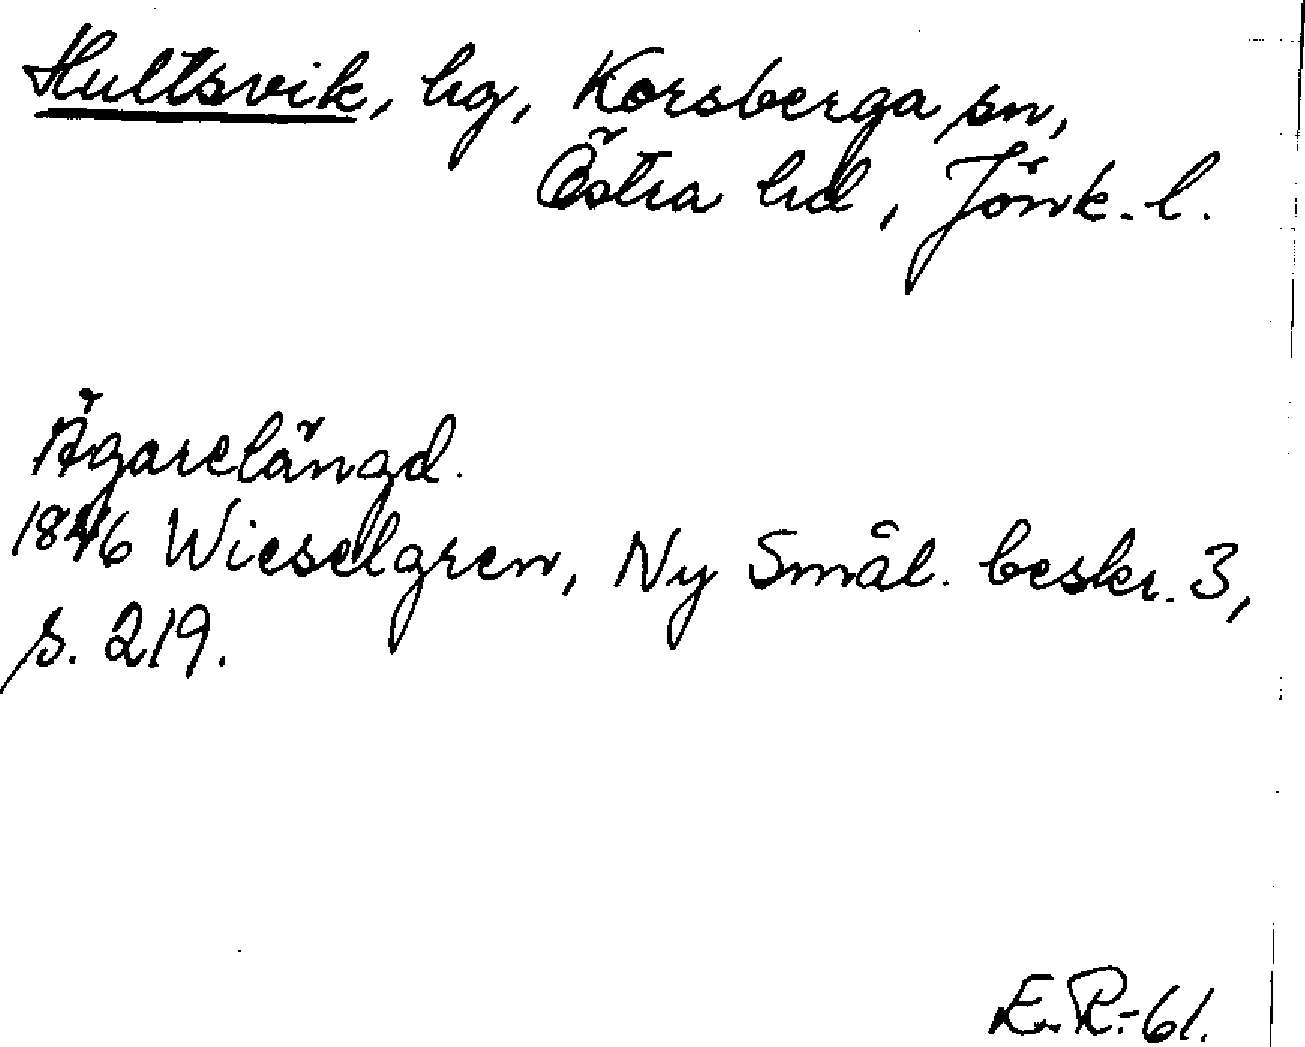 Hultsvik, hg, Korsberga sn,
Östra hd, Jönk. l.
Ägarelängd.
1846 Wieselgren, Ny Smål. beskr. 3,
s. 219.
E.R.-61.